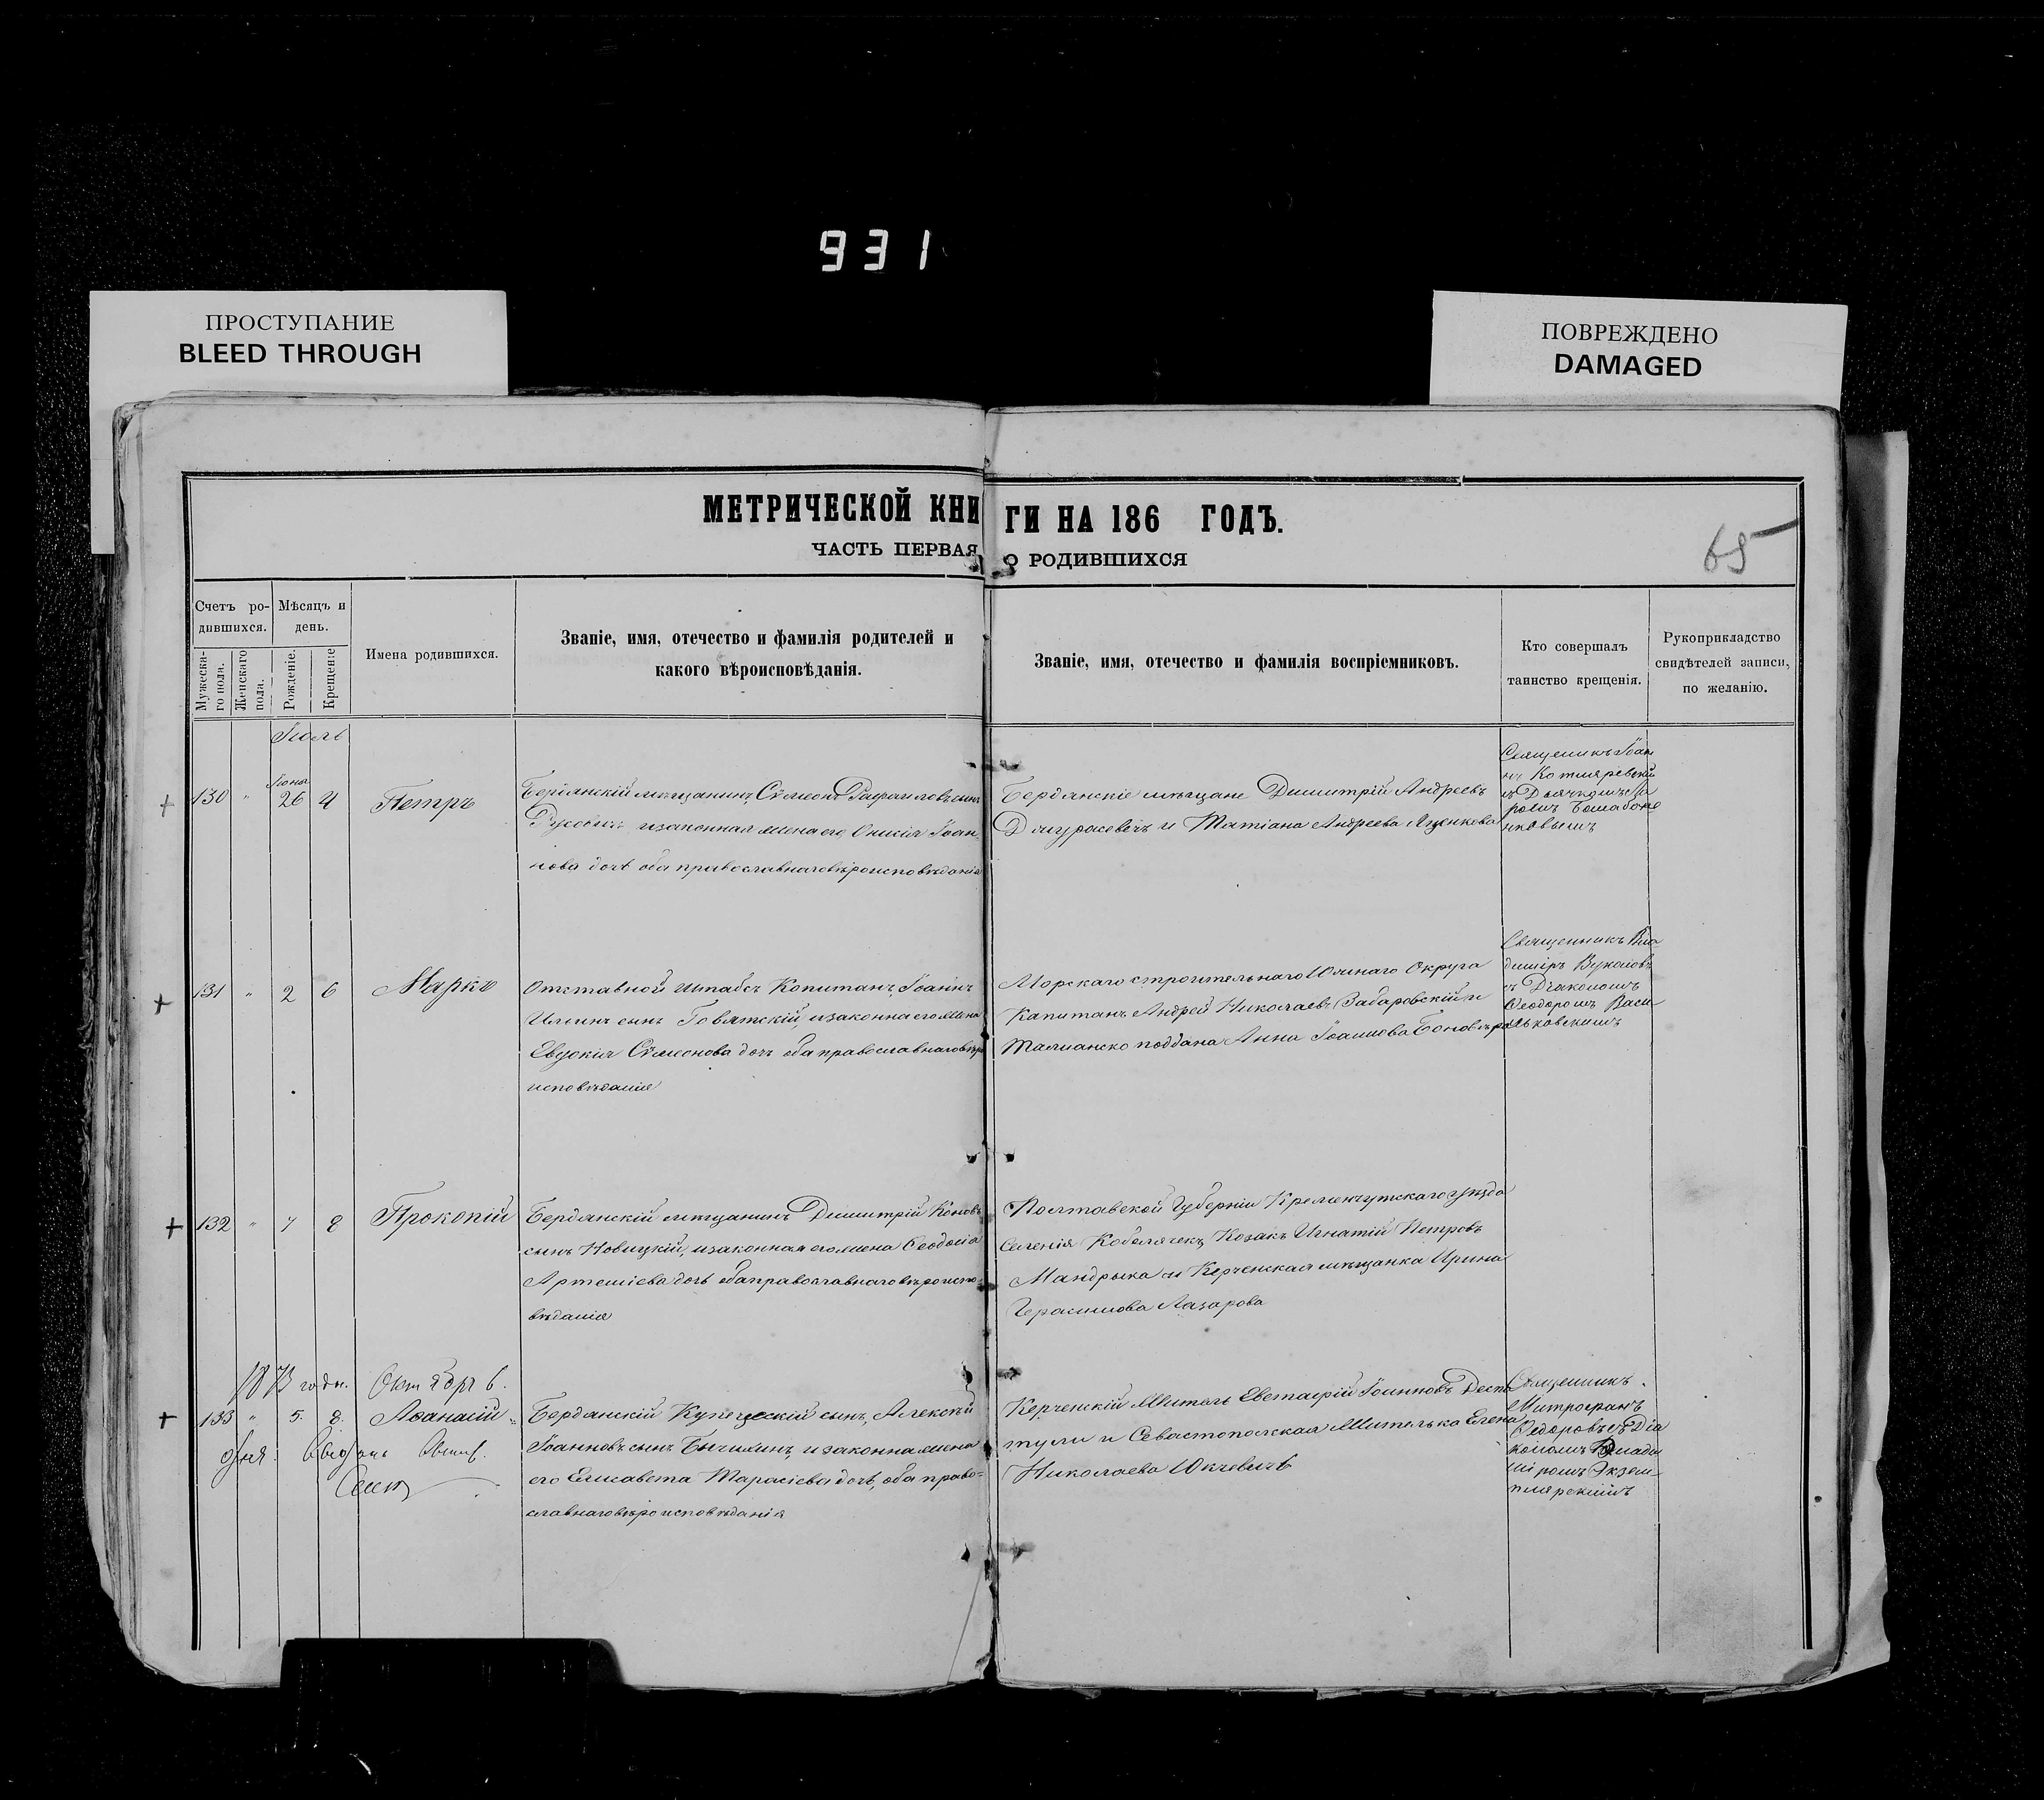 931
ПРОСТУПАНИЕ
BLEED THROUGH
ПОВРЕЖДЕНО
DAMAGED
МЕТРИЧЕСКОЙ КНИГИ НА 186 ГОДЪ.
ЧАСТЬ ПЕРВАЯ О РОДИВШИХСЯ
65
Счетъ ро-
дившихся.
Мужеска-
го пола.
Женскаго
пола.
Мѣсяцъ и
день.
Рожденіе.
Крещеніе
Имена родившихся.
Званіе, имя, отечество и фамилія родителей и
какого вѣроисповѣданія.
Званіе, имя, отечество и фамилія воспріемниковъ.
Кто совершалъ
таинство крещенія.
Рукоприкладство
свидѣтелей записи,
по желанію.
Іюль
130 " Іюня 26 4 Петръ
мѣщанинъ Сѵмеонъ сынъ
Іоан-
нова дочь оба православнаго вѣроисповѣданія
Бердянскіе мѣщане Димитрій Андреевъ
и Татіана Андреева Яценкова
Священникъ Іоан
нъ Котляревскій
131 " 2 6 Маркъ
Отставной Штабсъ Капитанъ Іоаннъ
Ильинъ сынъ Говятскій, и законна его жена
Евдокія Сѵмеонова дочь оба православнаго вѣро
исповѣданія
Морскаго строительнаго Южнаго Округа
Капитанъ Андрей Николаевъ Забаровскій и
поддана Анна Іоаннова
Священникъ Вла
димiръ Вуколовъ
съ Діакономъ
Ѳеодоромъ Васи
льковскимъ
132 " 7 8 Прокопій
Бердянскій мѣщанинъ Димитрій
сынъ Новицкій, и законная его жена Ѳеодосія
Артеміева дочь оба православнаго вѣроиспо-
вѣданія
Полтавской Губерніи Кременчугскаго уѣзда
Селенія Кобелячекъ Козакъ Игнатій Петровъ
Мандрыка и Керченская мѣщанка Ирина
Герасимова Лазарова
1873 года. Октября 6.
133 " 5. 8. Аѳанасій
дня.
Бердянскій Купеческій сынъ, Алексѣй
Іоанновъ сынъ и законна жена
его Елисавета Тарасіева дочь, оба право-
славнаго вѣроисповѣданія
Керченскій Житель Евстафій Іоанновъ Деспо
тули и Севастопольская Жителька Елена
Николаева Юкчевичъ
Священникъ
Митрофанъ
Ѳедоровъ съ Діа
кономъ Влади
міромъ Экзем
плярскимъ